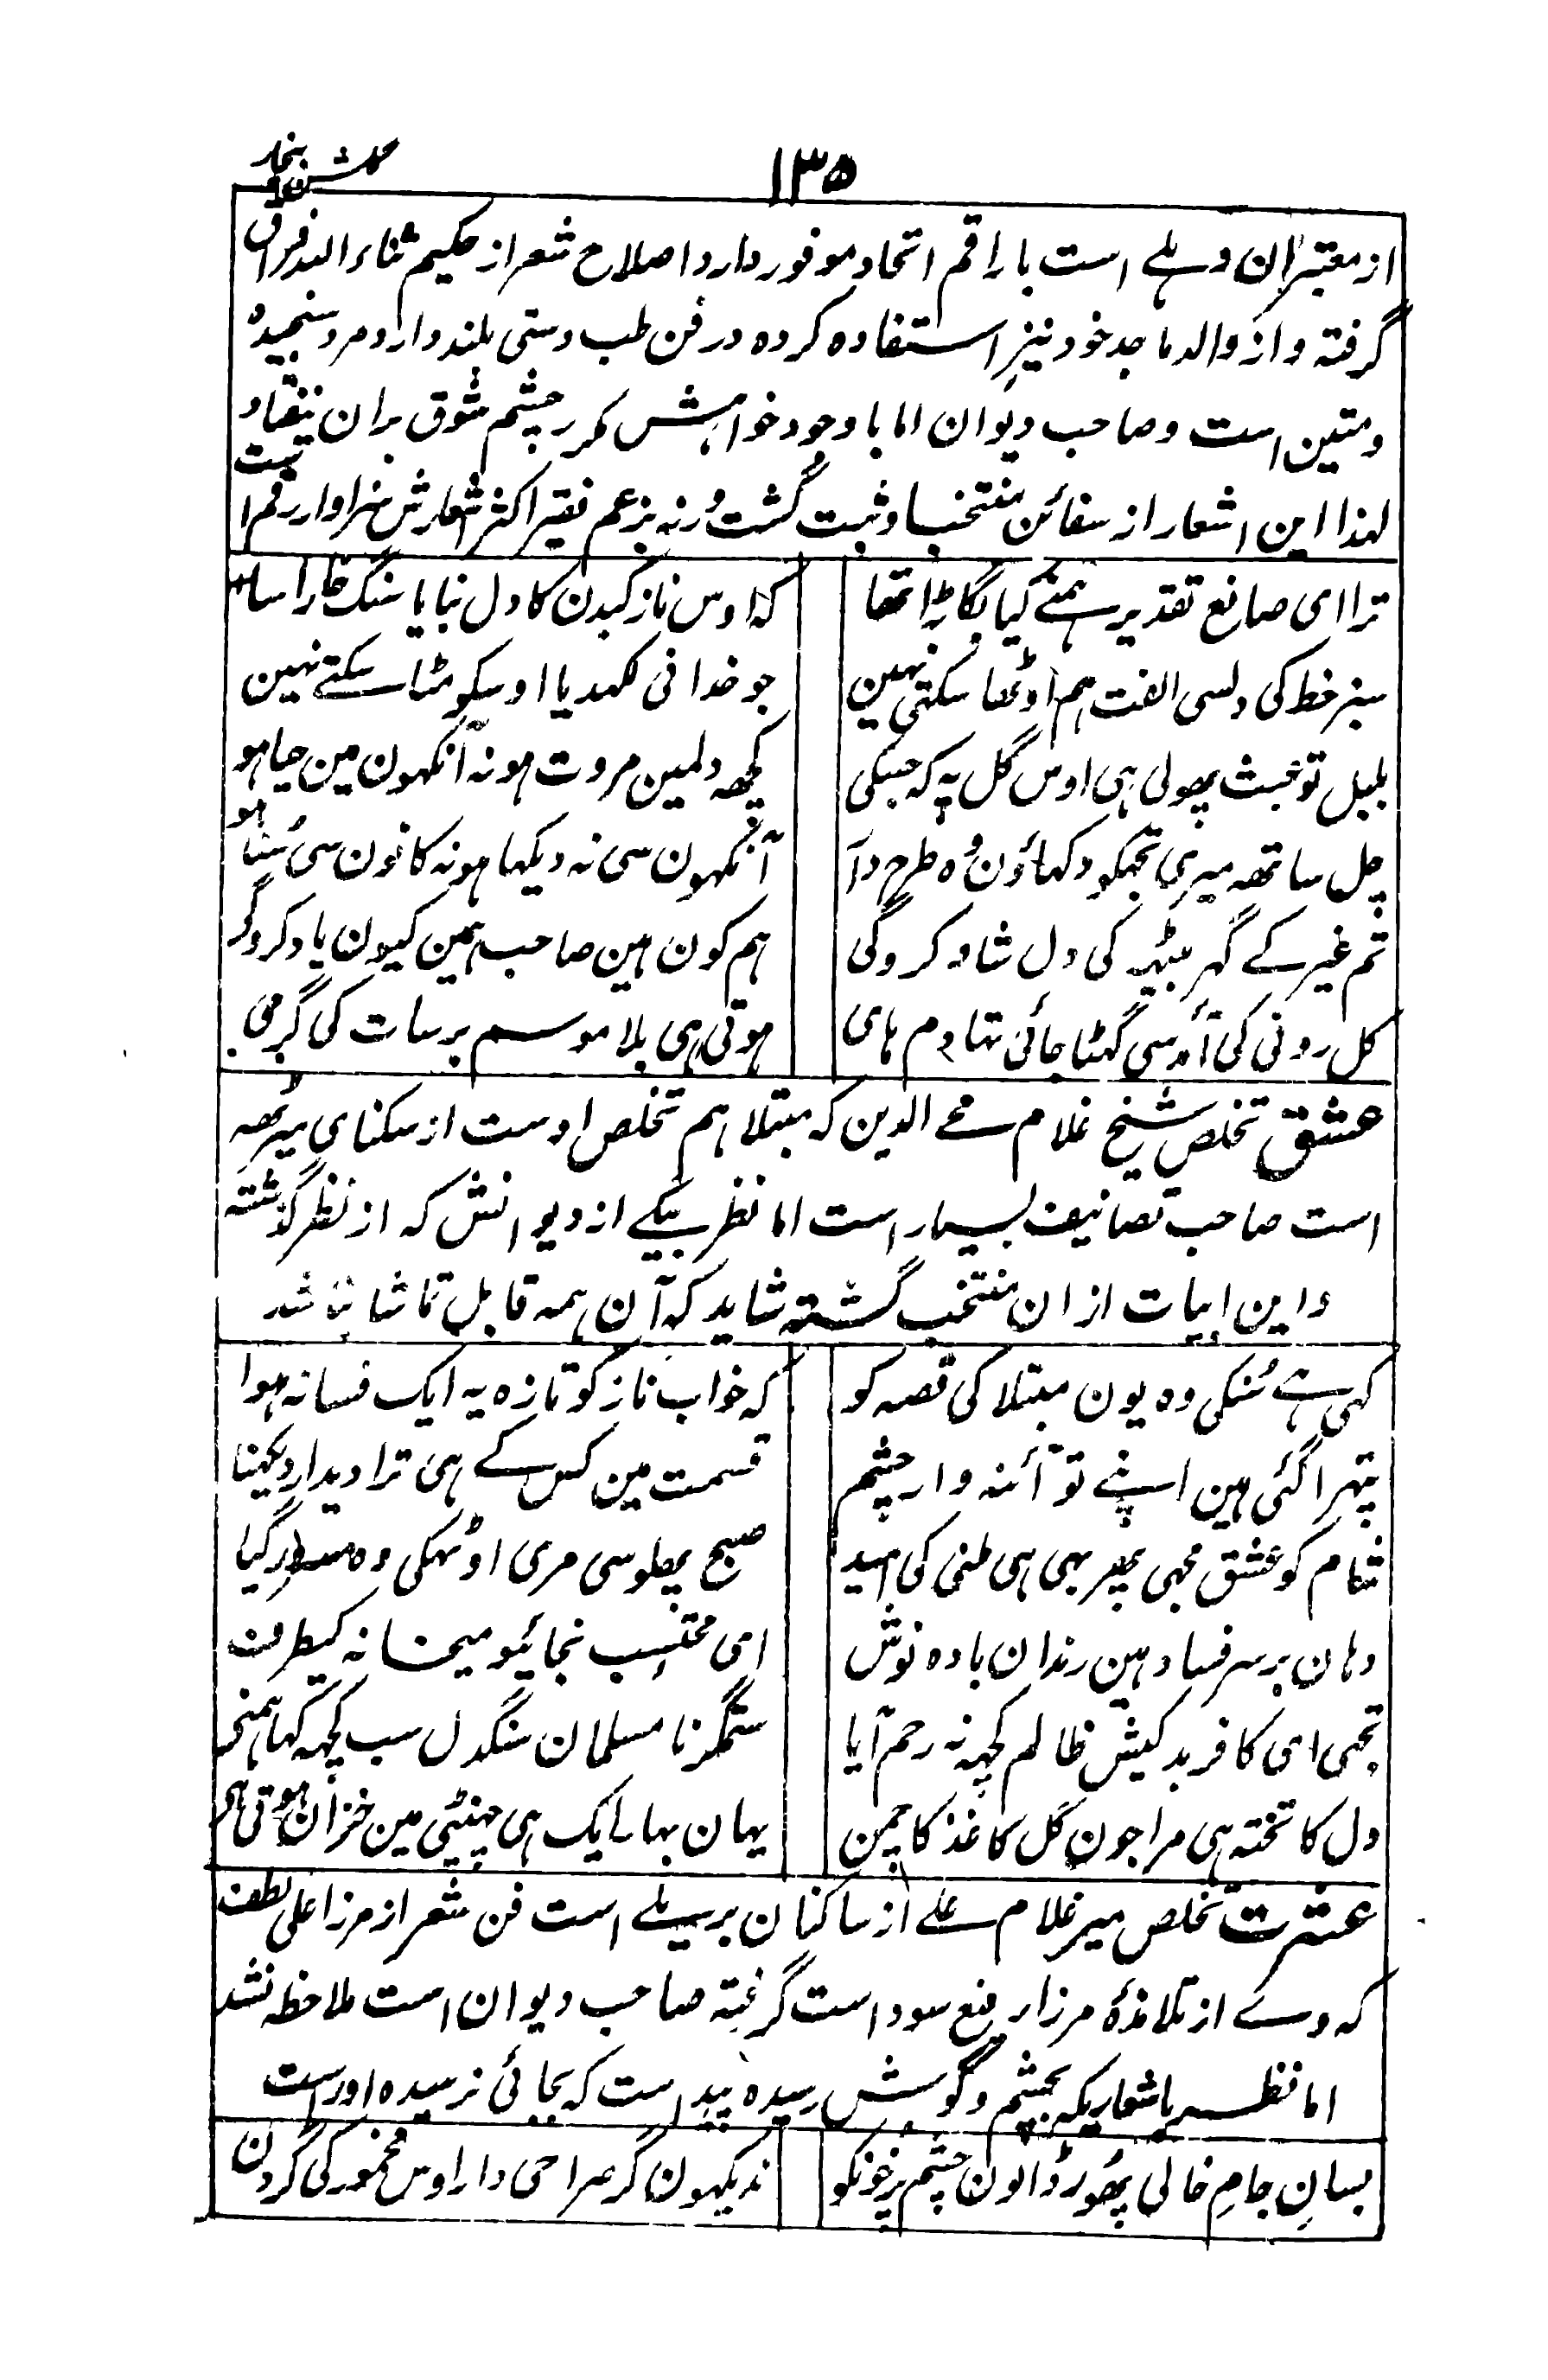 ۱۳۵
گلشن بیخار
از معتبران دہلے است با راقم اتحاد موفور دارد اصلاح شعر از حکیم ثناء اللہ فراق
گرفتہ و از والد ماجد خود نیز استفادہ کردہ در فن طب دستی بلند دارد مرد سنجیدہ
و متین است و صاحب دیوان اما با وجود خواہش مکرر چشم شوق بران نیفتاد
لہذا این اشعار از سفائن منتخبا و ثبت گشت ورنہ بزعم فقیر اکثر اشعارش سزاوار رقم است
ترا ای صانع تقدیر ہمنے کیا بگاڑا تھا
کہ اوس نازکبدن کا دل بنایا سنگ خارا سا
سبز خط کی دلسی الفت ہم اوٹھا سکتی نہین
جو خدا نی لکھدیا اوسکو مٹا سکتے نہین
بلبل تو عبث پھولی ہی اوس گل پہ کہ جسکی
کچھہ دلمین مروت ہو نہ آنکھون مین حیا ہو
چل ساتھہ میری تجھکو دکھاؤن وہ طرحدار
آنکھون سی نہ دیکھا ہو نہ کانون سی سُنا ہو
تم غیر کے گھر بیٹھہ کی دل شاد کرو گی
ہم کون ہین صاحب ہمین کیون یاد کرو گی
کل رونی کی آمد سی گھٹا جائی تھا دم ہای
ہوتی ہی بلا موسم برسات کی گرمی
عشق تخلص شیخ غلام محے الدین کہ مبتلا ہم تخلص اوست از سکنای میرٹھہ
است صاحب تصانیف بسیار است اما نظر بیکے از دیوانش کہ از نظر گذشتہ
و این ابیات از ان منتخب گشتہ شاید کہ آن ہمہ قابل تماشا نباشد
کہی ہے سُنکی وہ یون مبتلا کی قصہ کو
کہ خواب ناز کو تازہ یہ ایک فسانہ ہوا
پتہرا گئی ہین اپنے تو آئنہ وار چشم
قسمت مین کس کے ہی ترا دیدار دیکھنا
شام کو عشق مجھی پھر بھی ہی ملنی کی امید
صبح پہلو سی مری اوٹھکی وہ گیا
وہان بر سر فساد ہین رندان بادہ نوش
ای محتسب نجائیو میخانہ کیطرف
تجھی ای کافر بدکیش ظالم کچھہ نہ رحم آیا
ستمگر نا مسلمان سنگدل سب کچھہ کہا ہمنے
دل کا تختہ ہی مرا جون گل کاغذ کا چمن
یہان بہار ایک ہی چھینٹی مین خزان ہوتی ہی
عشرت تخلص میر غلام علے از ساکنان بریلے است فن شعر از مرزا علی لطف
کہ وے از تلامذۂ مرزا رفیع سودا است گرفتہ صاحب دیوان است ملاحظہ نشد
اما نظر باشعاریکہ بچشم و گوش رسیدہ پیداست کہ بجائی نرسیدہ اوراست
بسانِ جامِ خالی پھوڑ ڈالون چشم پرخونکو
ندیکھون گر صراحی دار اوس مخمور کی گردن